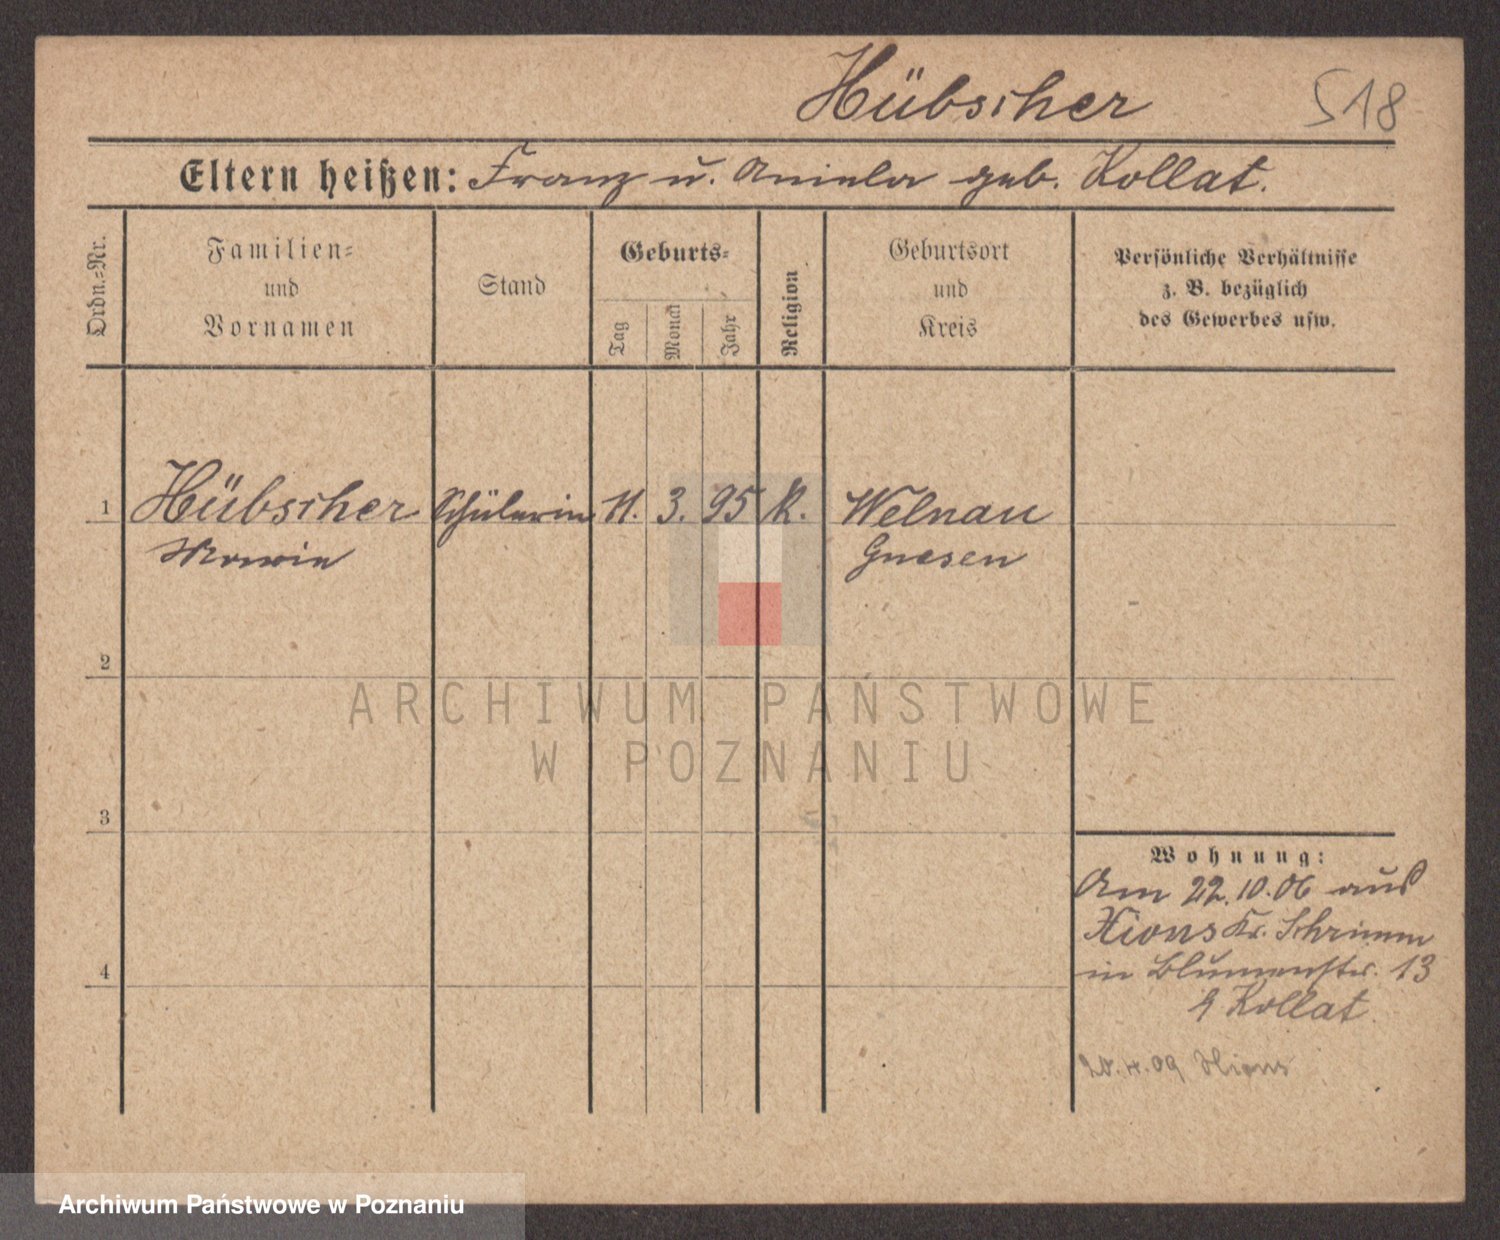 Hübscher 518
Eltern heißen: Franz u. Aniela geb. Kollat.
Ordn.-Nr.
Familien-
und
Vornamen
Stand
Geburts-
Tag
Monat
Jahr
Religion
Geburtsort
und
Kreis
Persönliche Verhältnisse
z. B. bezüglich
des Gewerbes usw.
1 Hübscher Schülerin 11. 3. 95 K. Welnau
Maria Gnesen
2
3
4
Wohnung:
Am 22.10.06 aus
Xions Kr. Schrimm
in Blumenstr. 13
Kollat.
20.4.09 Xions
ARCHIWUM PAŃSTWOWE
W POZNANIU
Archiwum Państwowe w Poznaniu